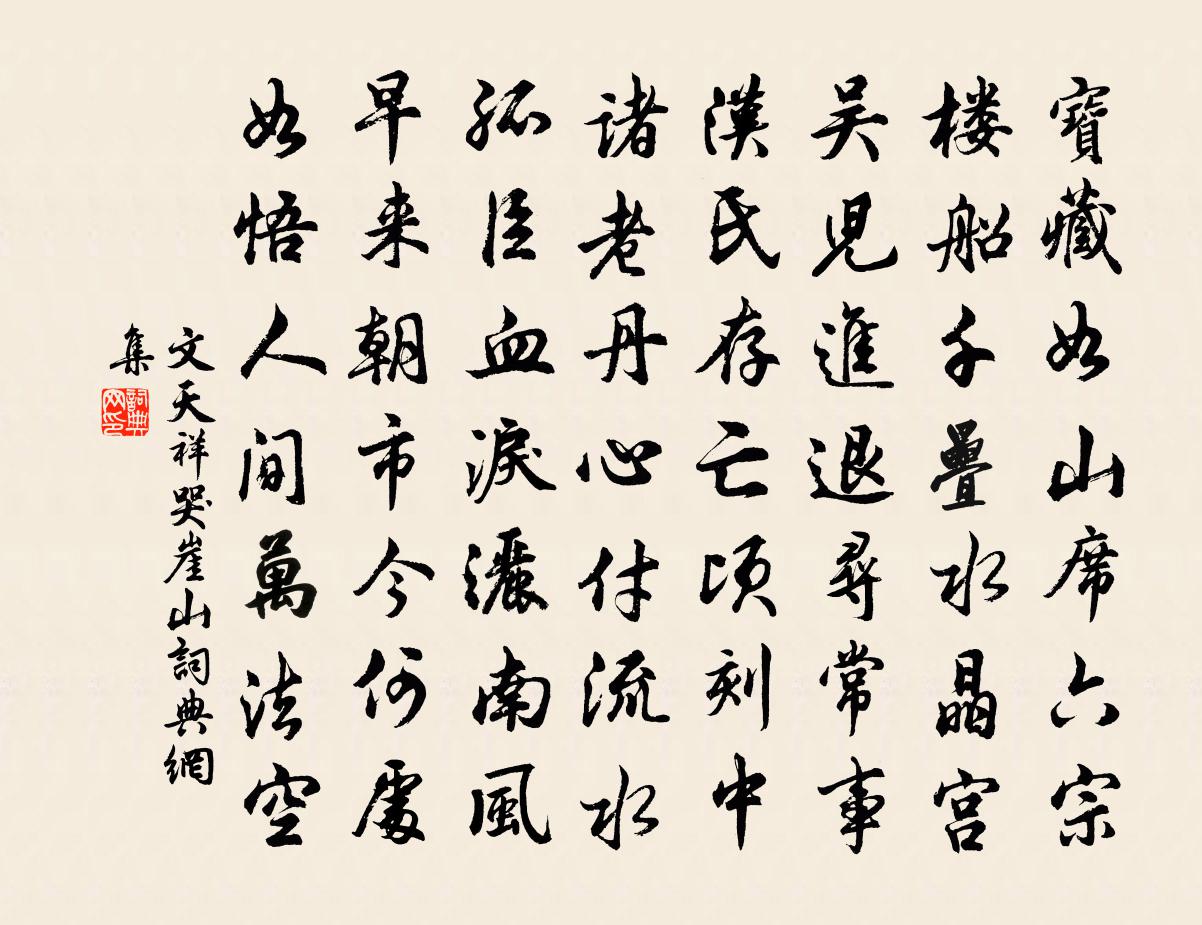 寶藏如山席六宗
楼船千疊水晶宫
吴兒進退尋常事
漢氏存亡頃刻中
諸老丹心付流水
孤臣血淚灑南風
早来朝市今何處
始悟人間萬法空
文天祥哭崖山詞典網
集
詞典网印